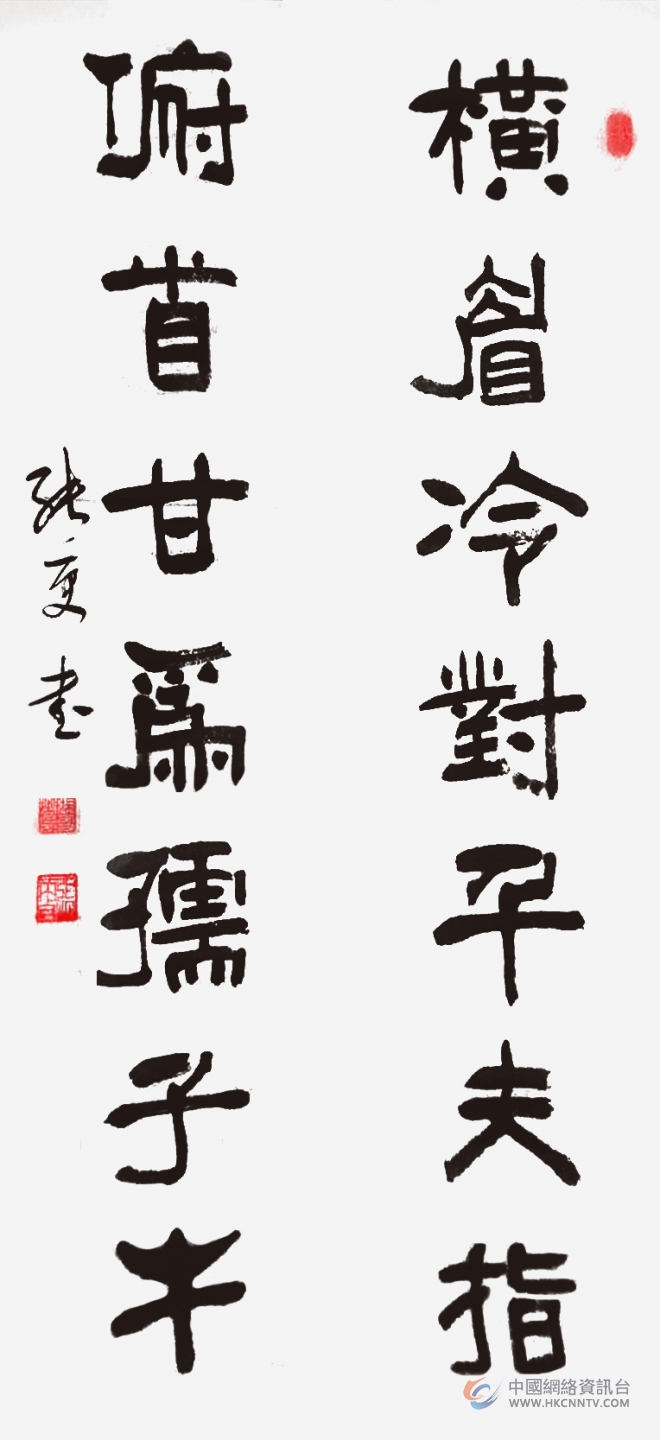 橫眉冷對千夫指
俯首甘爲孺子牛
張 書
中國網絡資訊台
WWW.HKCNNTV.COM